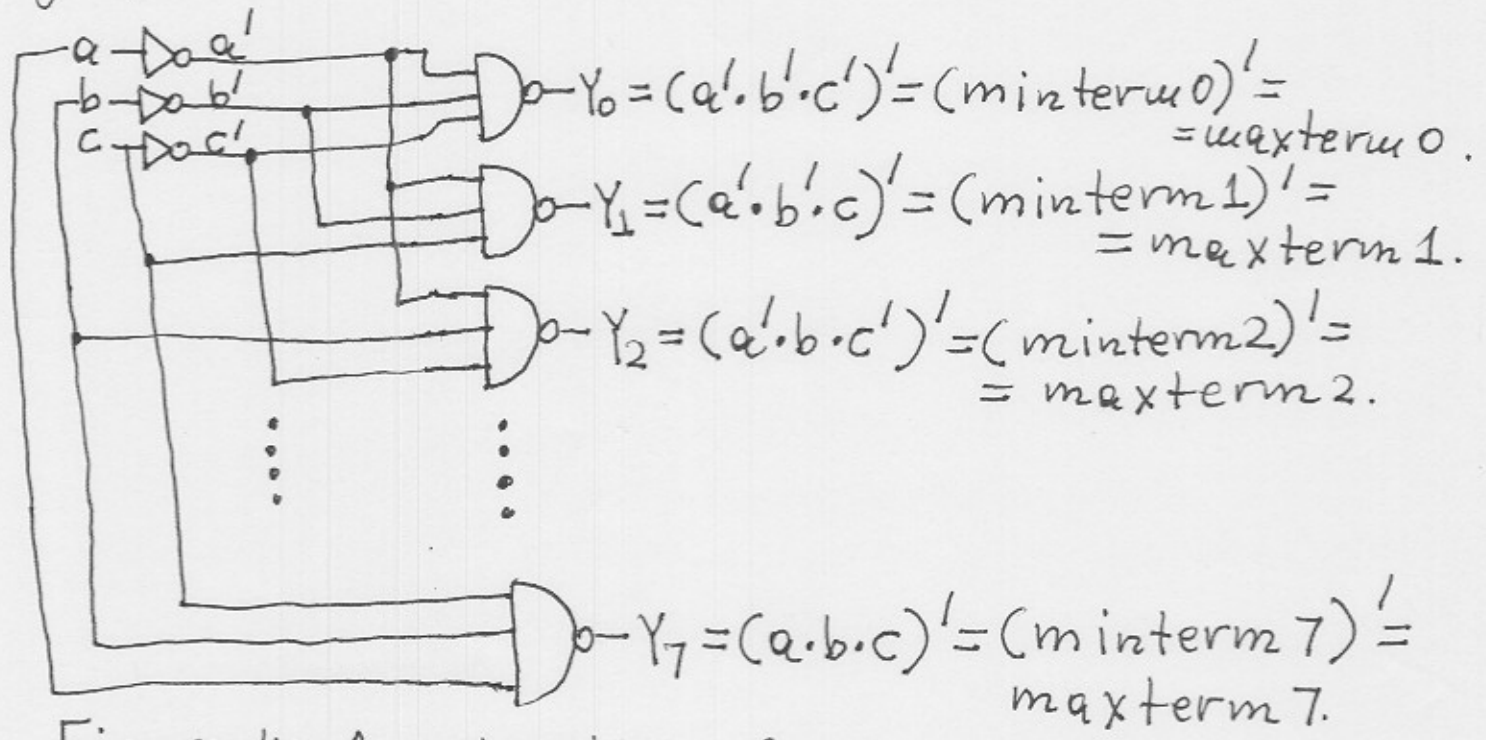 a a'
b b'
c c'
Y₀ = (a'·b'·c')' = (minterm 0)' =
= maxterm 0.
Y₁ = (a'·b'·c)' = (minterm 1)' =
= maxterm 1.
Y₂ = (a'·b·c')' = (minterm 2)' =
= maxterm 2.
Y₇ = (a·b·c)' = (minterm 7)' =
maxterm 7.